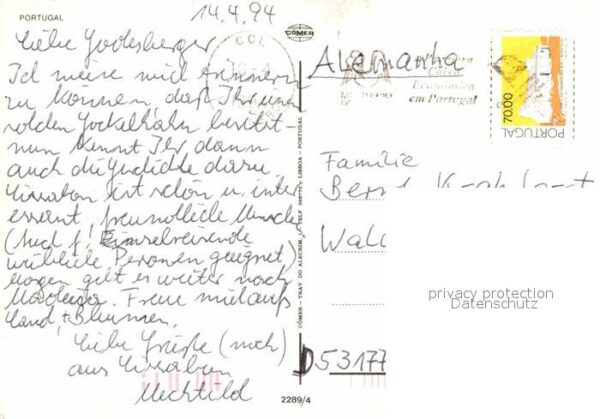 PORTUGAL
14.4.94
Liebe Godesberger
Ich meine mich erinnern
zu können, daß Ihr einen
solchen Gockelhahn besitzt -
nun kennt Ihr dann
auch die Geschichte dazu.
Lissabon ist schön u. inter
essant, freundliche Mensche
(Auch f. Einzelreisende
weibliche Personen geeignet)
Morgen geht es weiter nach
Madeira. Freue mich aufs
Land + Blumen.
Liebe Grüße (noch)
aus Lissabon
Mechtild
CÓMER
CÓMER - TRAV. DO ALECRIM, - LISBOA - PORTUGAL
2289/4
CCL
Alemanha
em Portugal
70.00
PORTUGAL
Familie
D 53177
privacy protection
Datenschutz